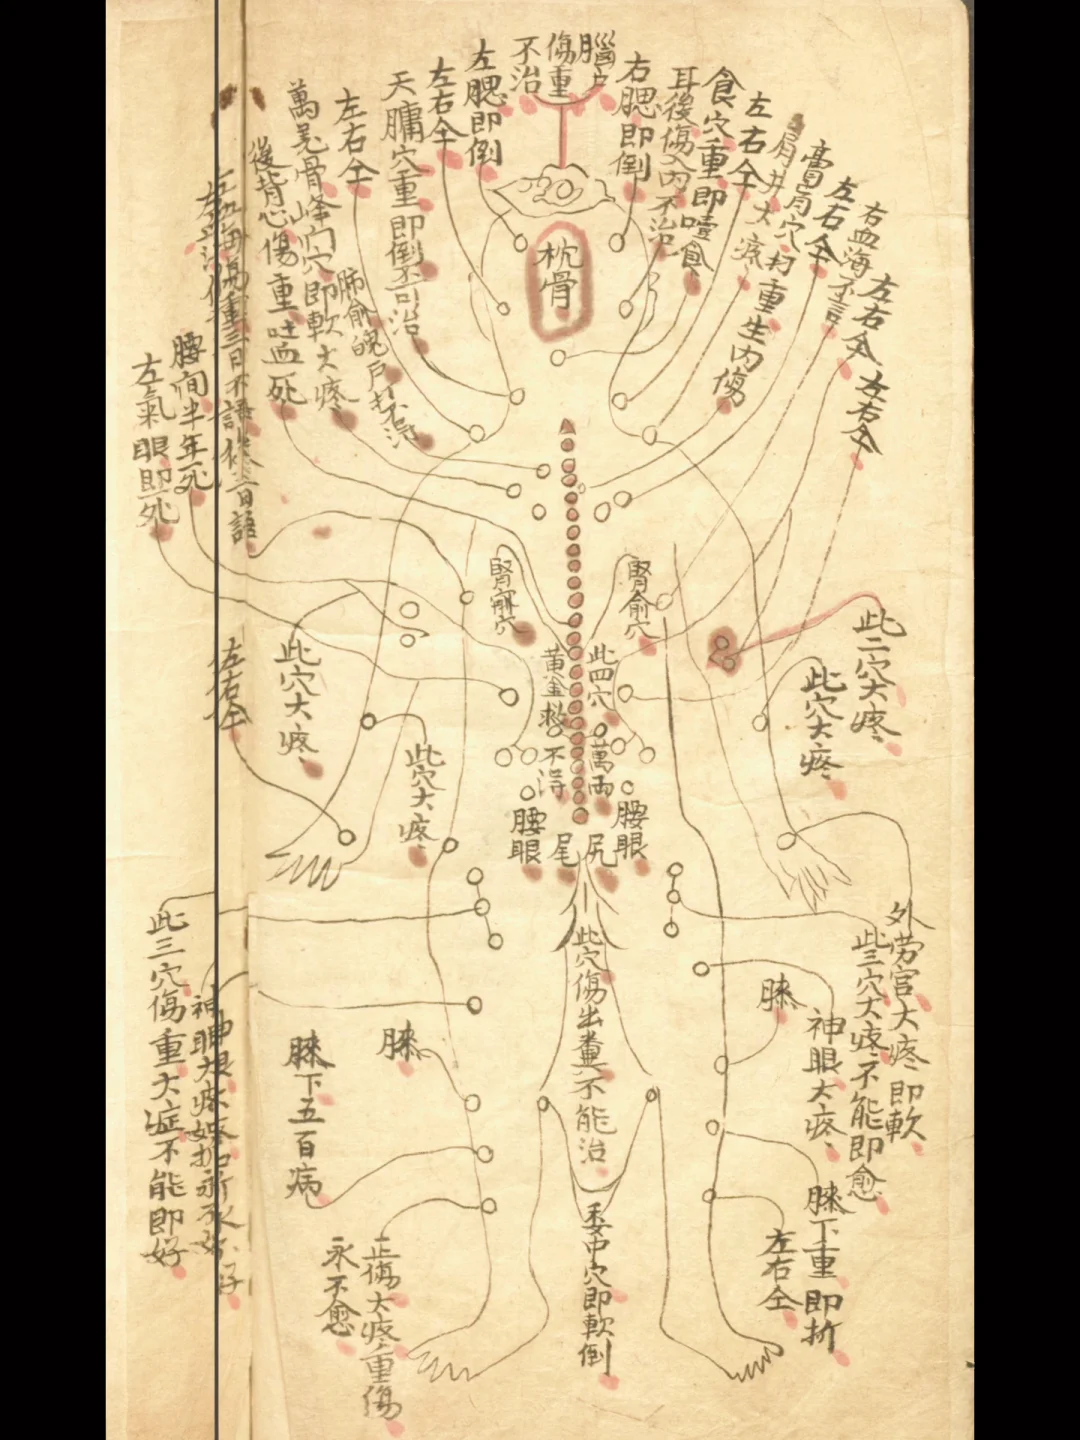 腦戶
傷重
不治
右腮即倒
耳後傷入內不治
食穴重即噎食
左右仝
肩井大疼
膏肓穴打重生內傷
左右仝
右血海不語
左右仝
左右仝
左腮即倒
左右仝
天牖穴重即倒不可治
左右仝
肺俞魄戶打不得
後背心傷重吐血死
腰間半年死
左氣眼即死
枕骨
腎俞穴
腎俞穴
此四穴
萬両
黃金救
不得
腰眼
腰眼
尾尻
此穴傷出糞不能治
委中穴即軟倒
此二穴大疼
此穴大疼
外劳宮大疼即軟
此三穴大疼不能即愈
膝
神眼大疼
膝下重即折
左右仝
左右仝
此穴大疼
此穴大疼
此三穴傷重大症不能即好
膝
膝下五百病
正傷大疼重傷
永不愈